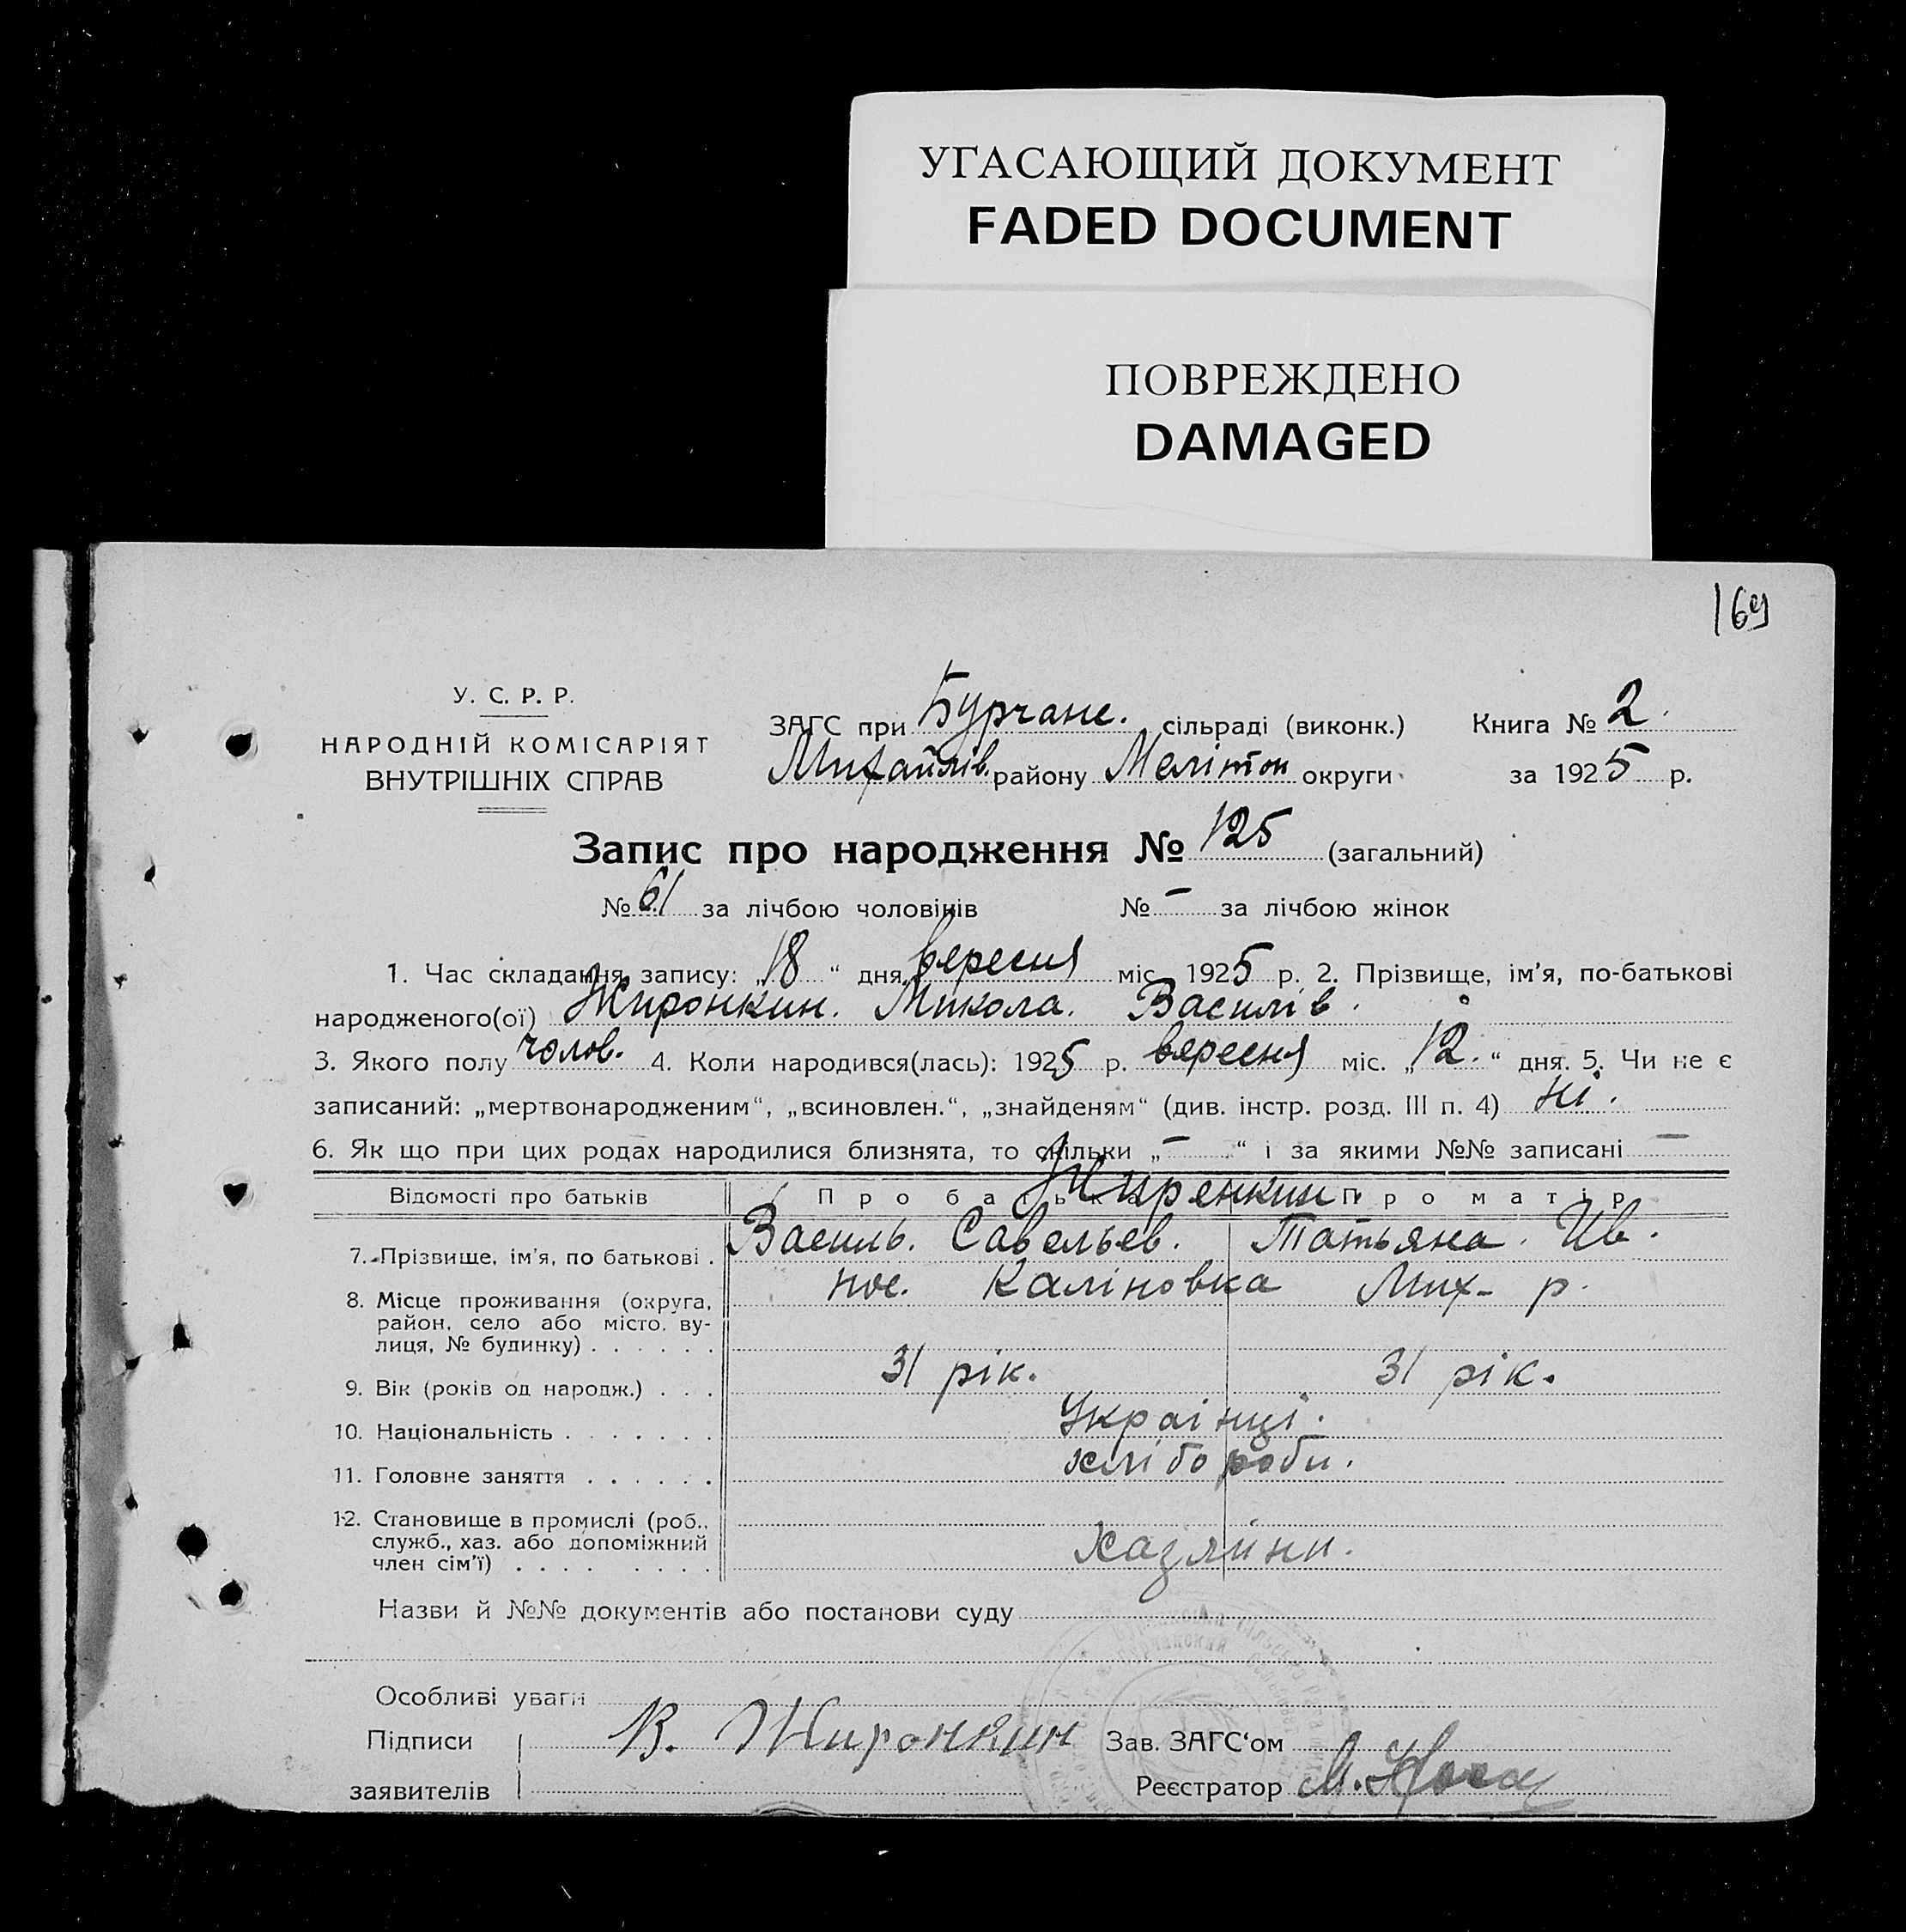 УГАСАЮЩИЙ ДОКУМЕНТ
FADED DOCUMENT
ПОВРЕЖДЕНО
DAMAGED
169
У. С. Р. Р.
НАРОДНІЙ КОМІСАРІЯТ
ВНУТРІШНІХ СПРАВ
ЗАГС при Бурчанс. сільраді (виконк.) Книга № 2.
Михайлів. району Меліто́п округи за 1925 р.
Запис про народження № 125 (загальний)
№ 61 за лічбою чоловіків № – за лічбою жінок
1. Час складання запису: „18“ дня вересня міс. 1925 р. 2. Прізвище, ім’я, по-батькові
народженого(ої) Жиронкин. Микола. Василів.
3. Якого полу чолов. 4. Коли народився(лась): 1925 р. вересня міс. „12.“ дня. 5. Чи не є
записаний: „мертвонародженим“, „всиновлен.“, „знайденям“ (див. інстр. розд. III п. 4) ні.
6. Як що при цих родах народилися близнята, то скільки „–“ і за якими №№ записані –
Відомості про батьків Про батька Жиренкин. Про матір
7. Прізвище, ім’я, по батькові . Василь. Савельев. Татьяна. Ив.
8. Місце проживання (округа, пос. Каліновка Мих- р.
район, село або місто, ву-
лиця, № будинку) . . . . . .
9. Вік (років од народж.) . . . 31 рік. 31 рік.
10. Національність . . . . . . . Украінці.
11. Головне заняття . . . . . . хлібороби.
12. Становище в промислі (роб.,
служб., хаз. або допоміжний Хазяіни.
член сім’ї) . . . . . . . .
Назви й №№ документів або постанови суду
Особливі уваги
Підписи В. Жиронкин Зав. ЗАГС‘ом
заявителів Реєстратор М.